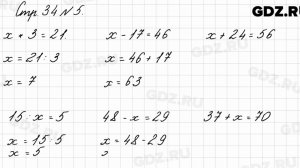 GDZ.RU
Стр. 34 № 5.
x · 3 = 21
x = 21 : 3
x = 7
x - 17 = 46
x = 46 + 17
x = 63
x + 24 = 56
15 : x = 5
x = 15 : 5
x = 5
48 - x = 29
x = 48 - 29
37 + x = 70
GDZ.RU